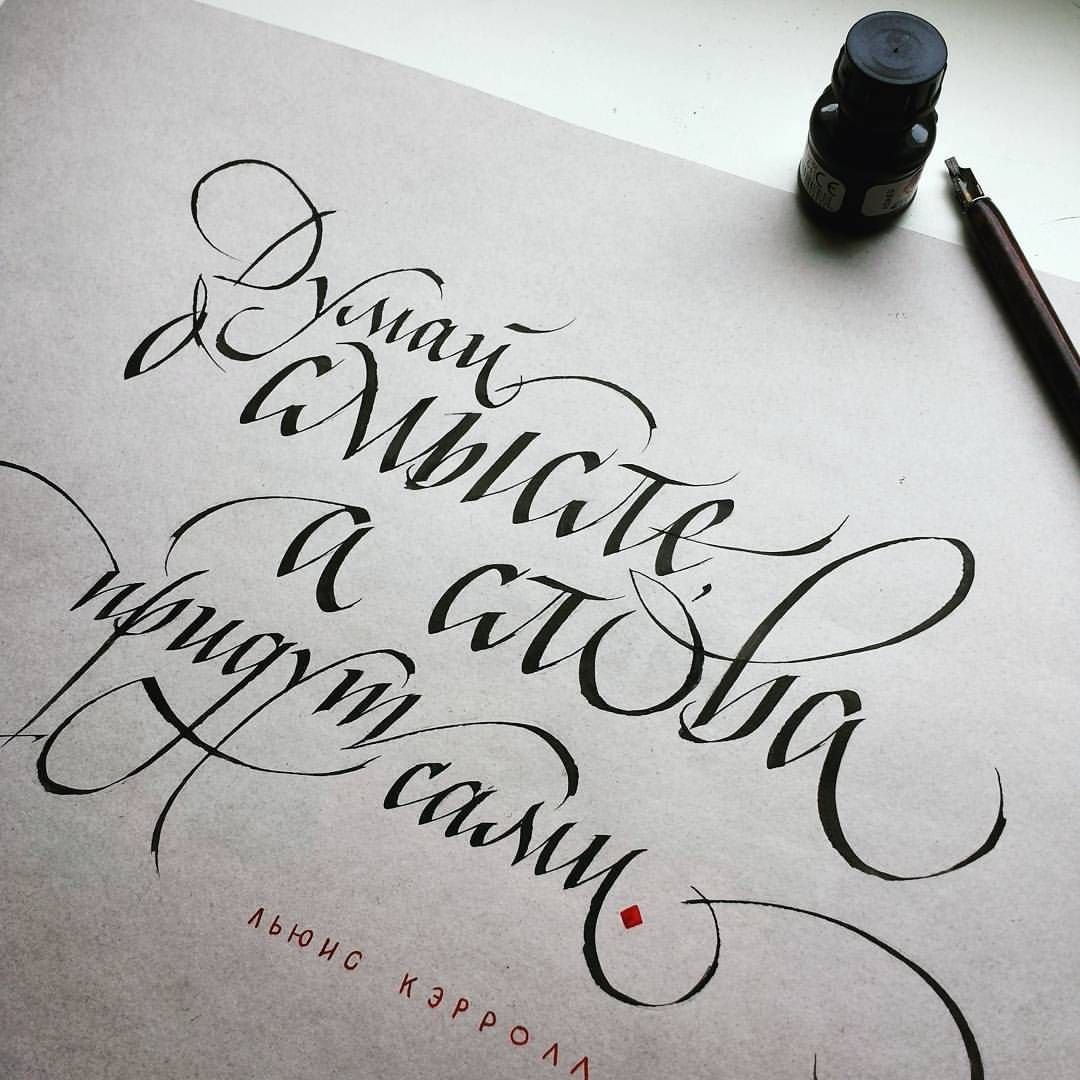 Думай
о смысле,
а слова
придут
сами.
ЛЬЮИС КЭРРОЛЛ
CE